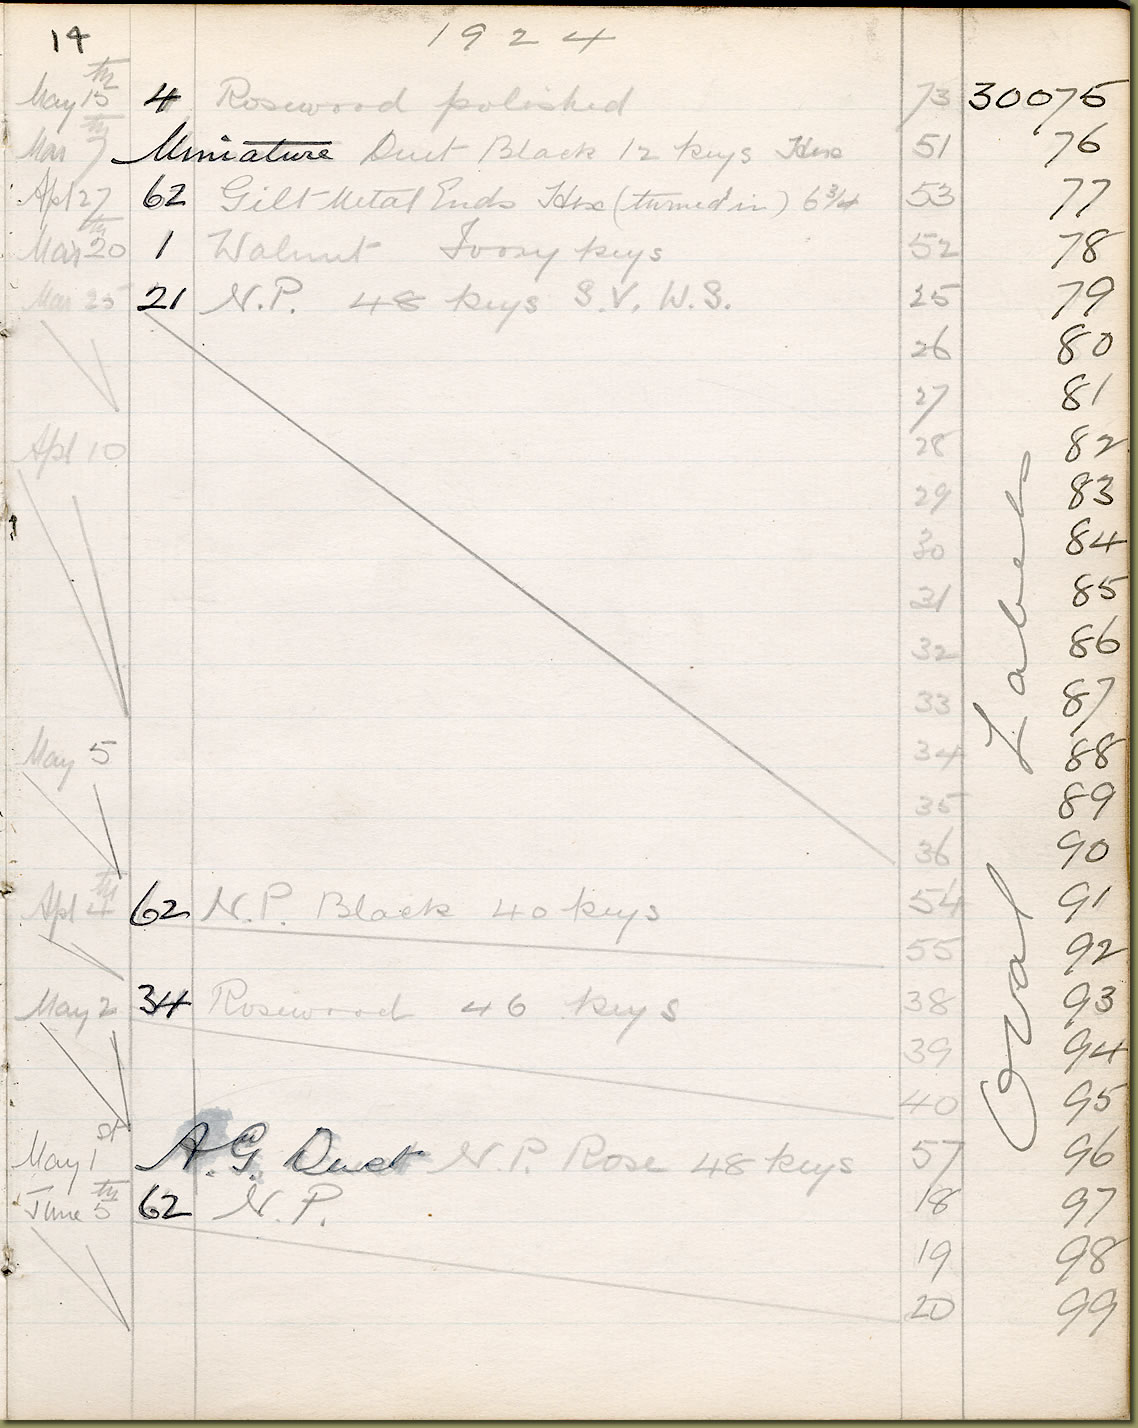 14 1924
May 15th 4 Rosewood polished 73 30075
Mar 7th Miniature Duet Black 12 keys Hex 51 76
Apl 27 62 Gilt Metal Ends Hex (turned in) 6 3/4 53 77
Mar 20th 1 Walnut Ivory keys 52 78
Mar 25 21 N.P. 48 keys S.V. W.S. 25 79
26 80
27 81
Apl 10 28 82
29 83
30 84
31 85
32 86
33 87
May 5 34 88
35 89
36 90
Apl 4th 62 N.P. Black 40 keys 54 91
55 92
May 2 34 Rosewood 46 keys 38 93
39 94
40 95
May 1st A.G. Duet N.P. Rose 48 keys 57 96
June 5th 62 N.P. 18 97
19 98
20 99
Oval Labels